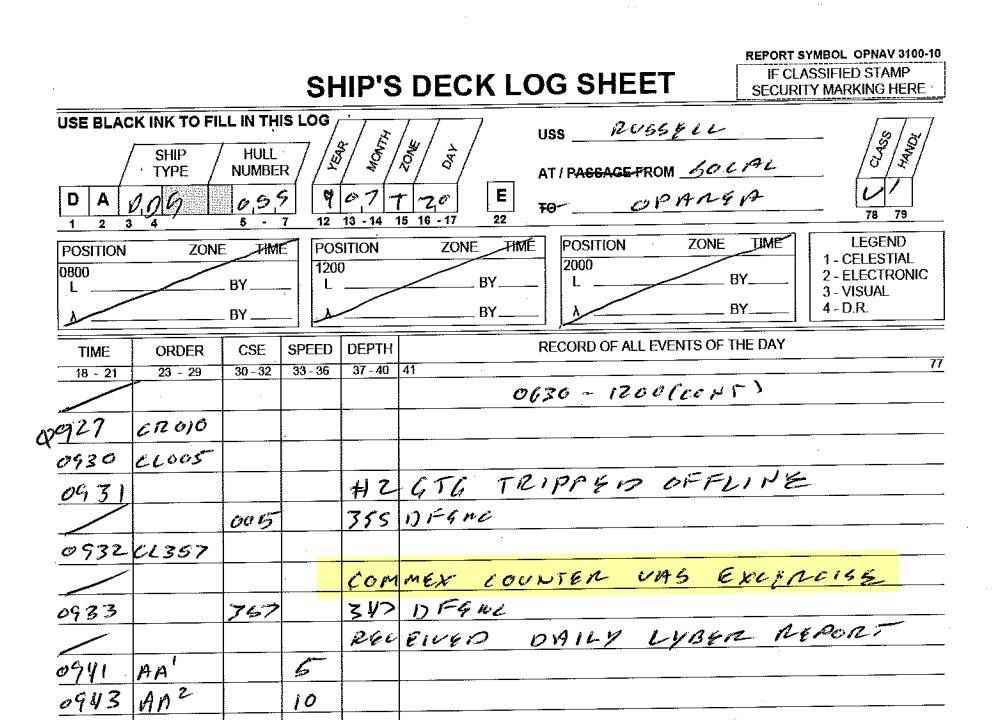 REPORT SYMBOL OPNAV 3100-10
SHIP'S DECK LOG SHEET
IF CLASSIFIED STAMP
SECURITY MARKING HERE
USE BLACK INK TO FILL IN THIS LOG
SHIP TYPE HULL NUMBER YEAR MONTH ZONE DAY
USS RUSSELL
CLASS HANDL
AT / PASSAGE FROM LOCAL
D A DDG 059 9 07 T 20 E
TO OPAREA
U
1 2 3 4 5 - 7 12 13 - 14 15 16 - 17 22 78 79
POSITION ZONE TIME POSITION ZONE TIME POSITION ZONE TIME LEGEND
0800 1200 2000 1 - CELESTIAL
L BY L BY L BY 2 - ELECTRONIC
3 - VISUAL
λ BY λ BY λ BY 4 - D.R.
TIME ORDER CSE SPEED DEPTH RECORD OF ALL EVENTS OF THE DAY
18 - 21 23 - 29 30 - 32 33 - 36 37 - 40 41 77
0630 - 1200 (CONT)
0927 CR010
0930 CL005
0931 #2 GTG TRIPPED OFFLINE
005 355 DFGMC
0932 CL357
COMMEX COUNTER UAS EXCERCISE
0933 357 347 DFGMC
RECEIVED DAILY LYBER REPORT
0941 AA1 5
0943 AA2 10